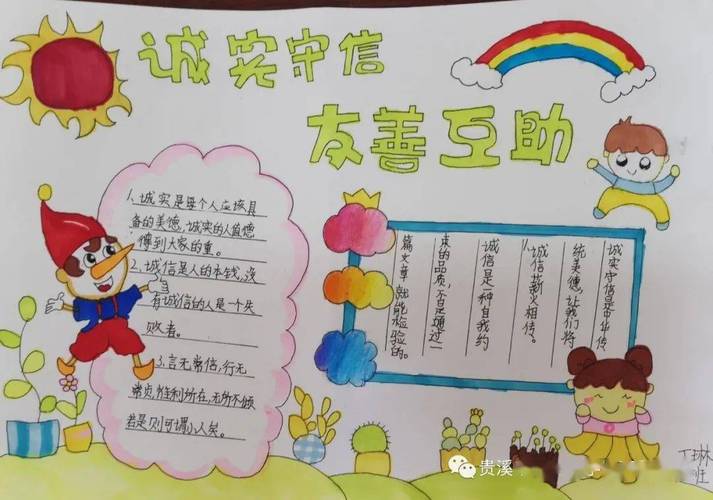 诚实守信
友善互助
1.诚实是每个人应该具
备的美德,诚实的人值德
得到大家的重。
2.诚信是人的本钱,没
有诚信的人是一个失
败者。
3.言无常信,行无
常贞,惟利所在,无所不倾
若是则可谓小人矣。
诚实守信是中华传
统美德,让我们将
诚信薪火相传。
诚信是一种自我约
束的品质,不是通过一
篇文章就能检验的。
贵溪
丁琳
班